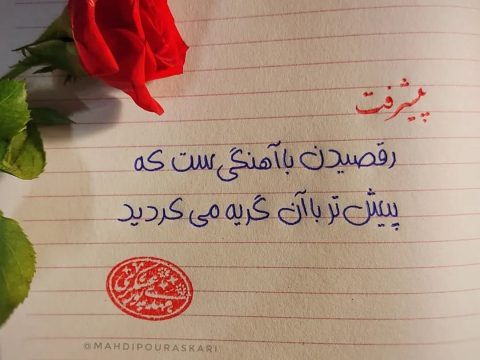 پیشرفت
رقصیدن با آهنگی ست که
پیش تر با آن گریه می کردید
مهدی پورعسکری
@MAHDIPOURASKARI